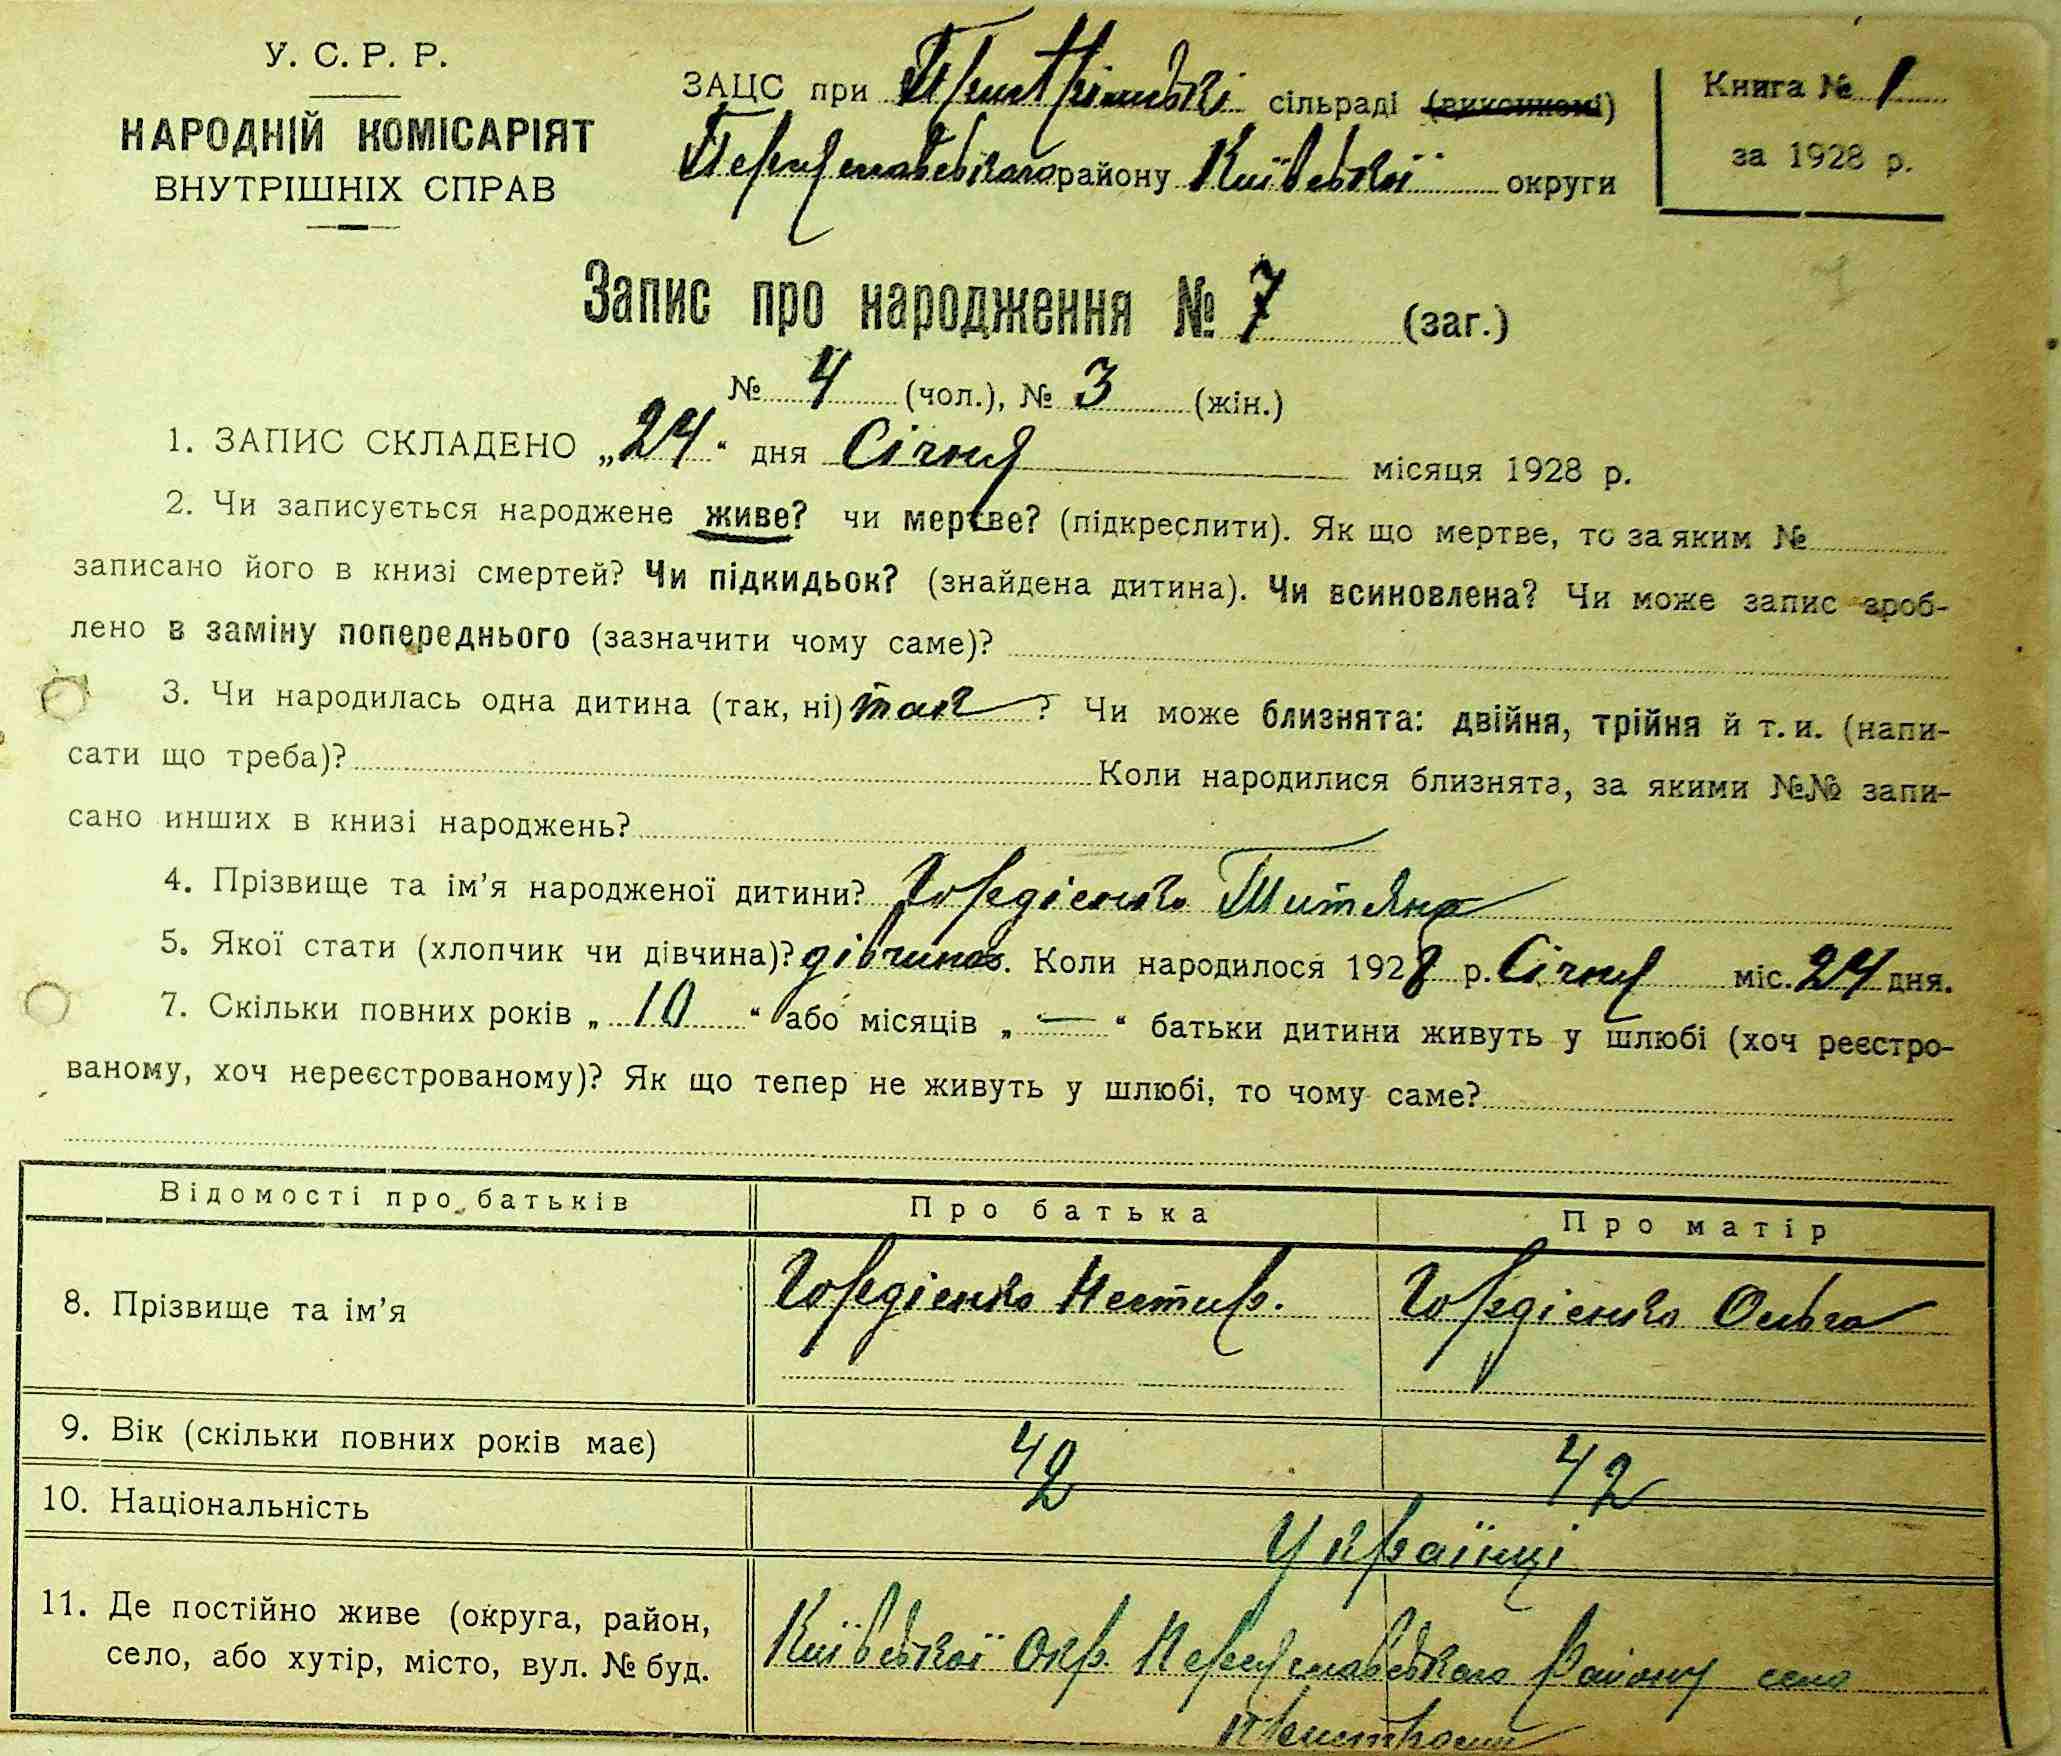 У. С. Р. Р.
НАРОДНІЙ КОМІСАРІЯТ
ВНУТРІШНІХ СПРАВ
ЗАЦС при сільраді (виконкомі)
Переяславського району Київської округи
Книга № 1
за 1928 р.
Запис про народження № 7 (заг.)
№ 4 (чол.), № 3 (жін.)
1. ЗАПИС СКЛАДЕНО „24“ дня Січня місяця 1928 р.
2. Чи записується народжене живе? чи мертве? (підкреслити). Як що мертве, то за яким №
записано його в книзі смертей? Чи підкидьок? (знайдена дитина). Чи всиновлена? Чи може запис зроб-
лено в заміну попереднього (зазначити чому саме)?
3. Чи народилась одна дитина (так, ні) так? Чи може близнята: двійня, трійня й т. и. (напи-
сати що треба)? Коли народилися близнята, за якими №№ запи-
сано инших в книзі народжень?
4. Прізвище та ім’я народженої дитини? Гордієнко Титяна
5. Якої стати (хлопчик чи дівчина)? дівчина. Коли народилося 1928 р. Січня міс. 24 дня.
7. Скільки повних років „10“ або місяців „—“ батьки дитини живуть у шлюбі (хоч реєстро-
ваному, хоч нереєстрованому)? Як що тепер не живуть у шлюбі, то чому саме?
Відомості про батьків Про батька Про матір
8. Прізвище та ім’я Гордієнко Нестир. Гордієнко Ольга
9. Вік (скільки повних років має) 42 42
10. Національність Українці
11. Де постійно живе (округа, район, село, або хутір, місто, вул. № буд. Київської Окр. Переяславського Району село